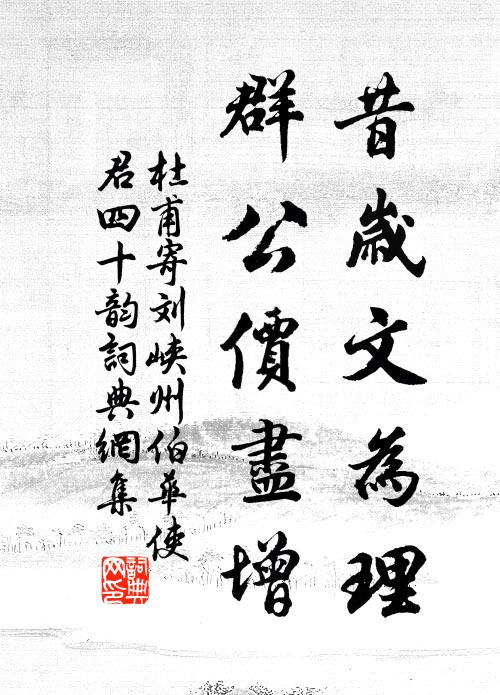 昔歲文為理
群公價盡增
杜甫寄刘峡州伯華使
君四十韵詞典網集
詞典
网印